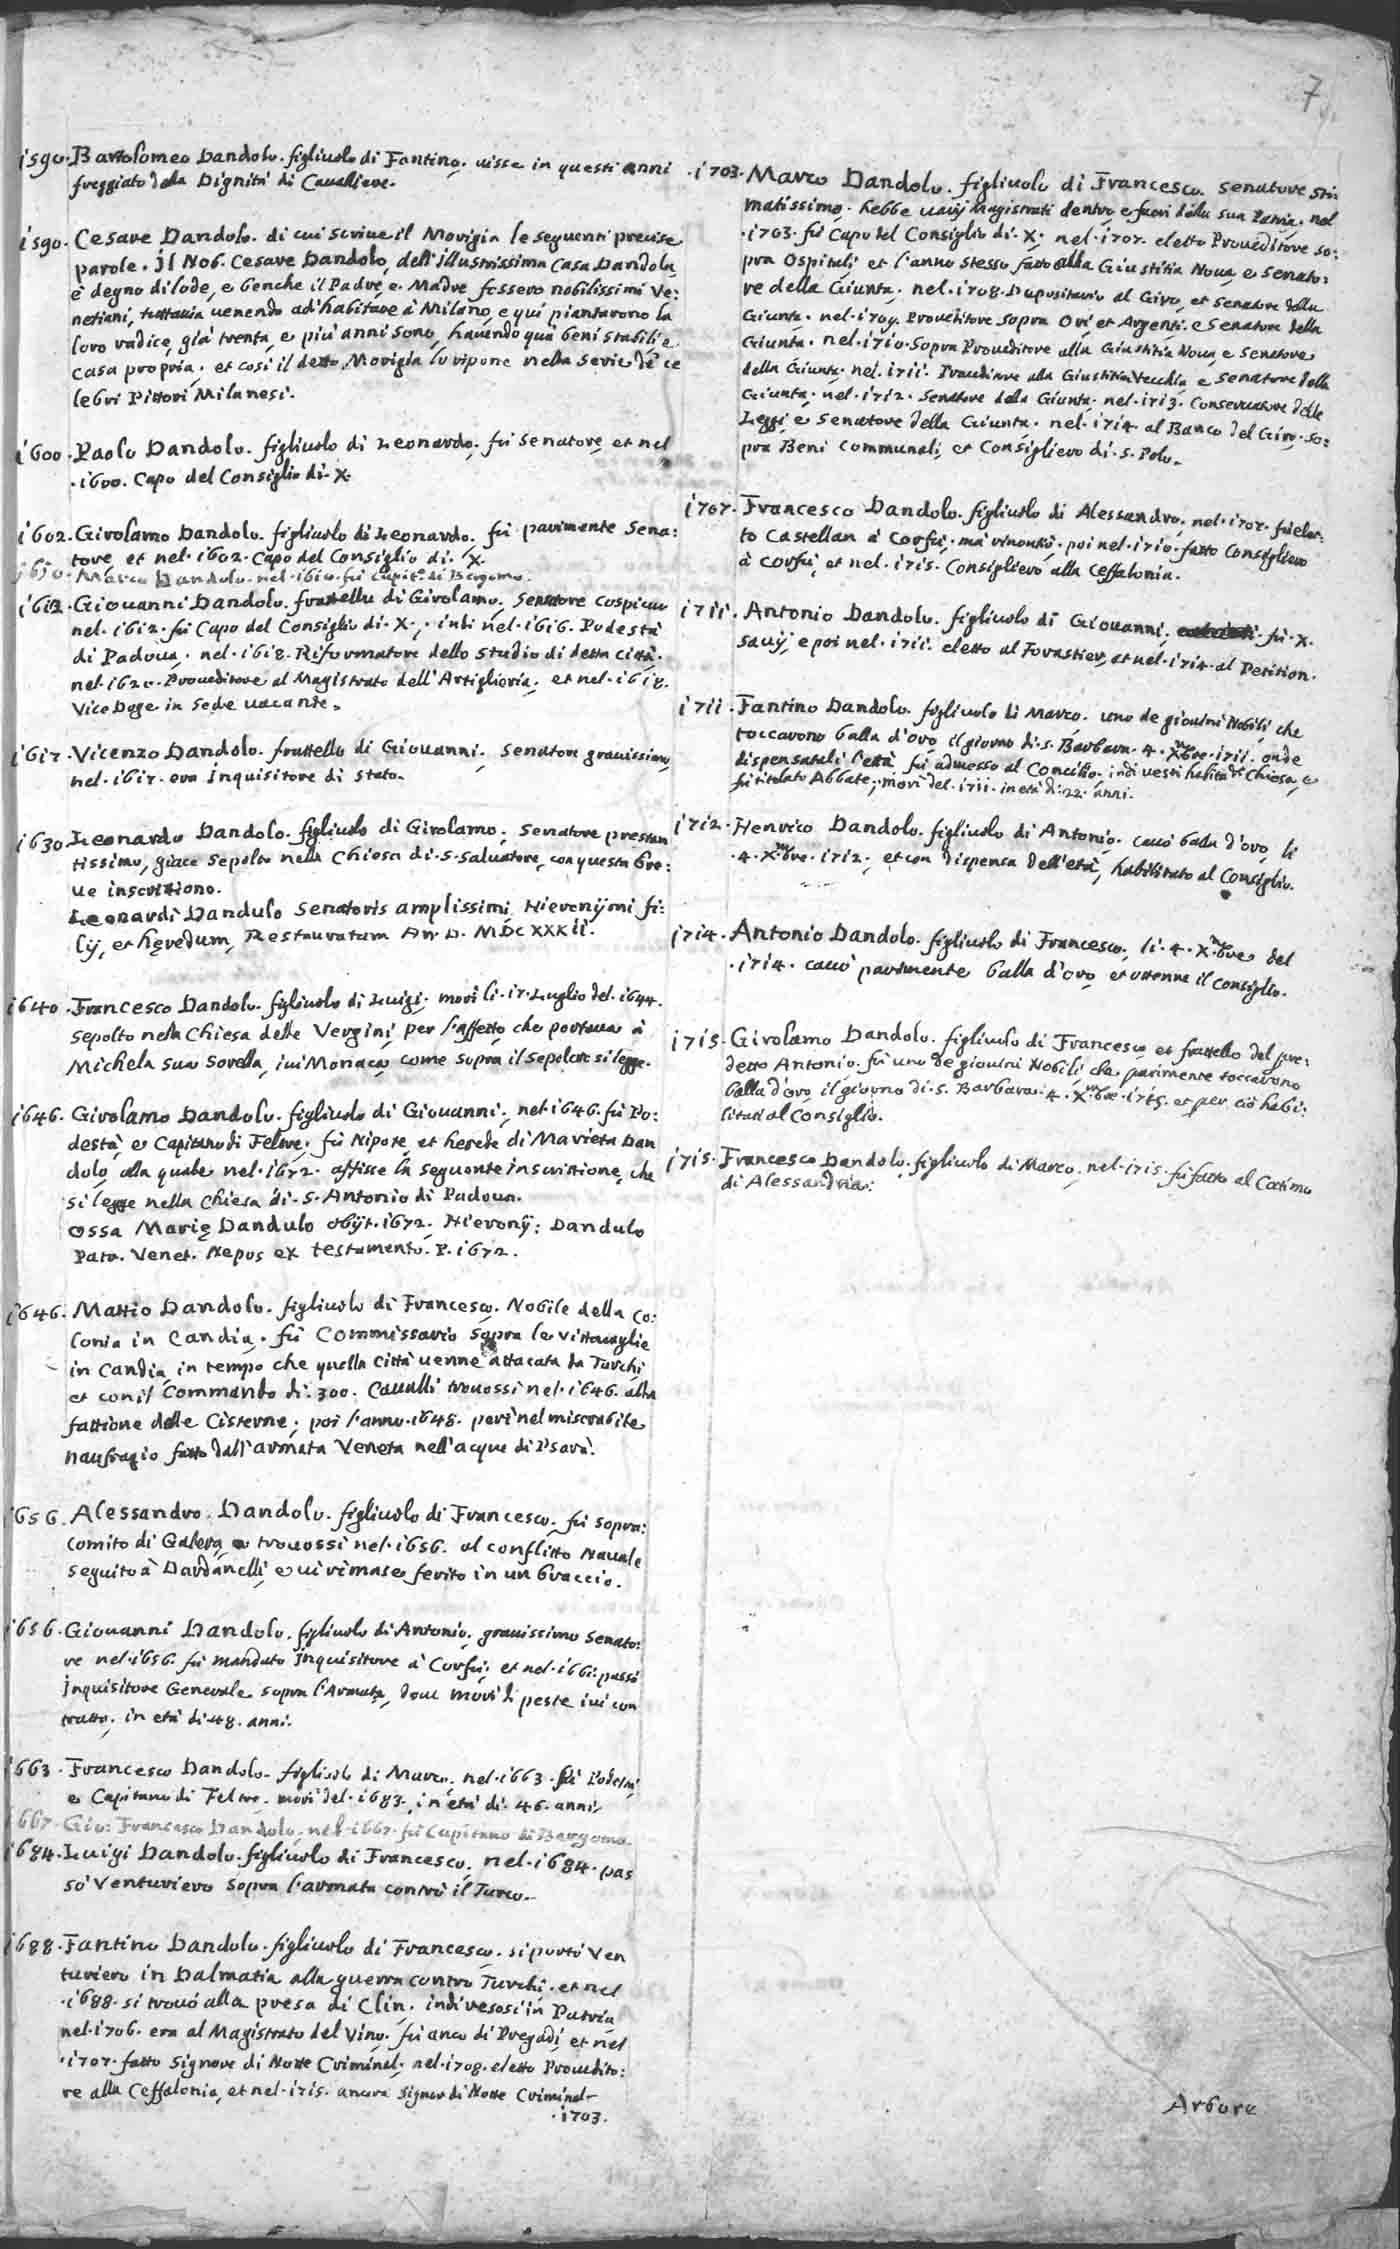 7
1590. Bartolomeo Dandolo. figliuolo di Fantino. uisse in questi anni
freggiato dela Dignità di Caualliere.
1590. Cesare Dandolo. di cui scriue il Morigia le seguenti precise
parole. Il Nob. Cesare Dandolo, dell'illustrissima Casa Dandola,
è degno di lode, e benche il Padre, e Madre fossero nobilissimi Ve:
netiani, tuttauia uenendo ad habitare à Milano, e qui piantarono la
loro radice, già trenta, e più anni sono, hauendo quà beni stabili, e
casa propria. et così il detto Morigia lo ripone nella serie de ce
lebri Pittori Milanesi.
1600. Paolo Dandolo. figliuolo di Leonardo. fù Senatore, et nel
.1600. Capo del Consiglio di .X.
1602. Girolamo Dandolo. figliuolo di Leonardo. fù parimente Sena:
tore, et nel .1602. Capo del Consiglio di .X.
1610. Marco Dandolo. nel .1610. fù Capit.º di Bergamo.
1612. Giouanni Dandolo. frattello di Girolamo. Senatore cospicuo
nel .1612. fù Capo del Consiglio di .X., indi nel .1616. Podestà
di Padoua. nel .1618. Riformatore dello Studio di detta città.
nel .1620. Proueditore al Magistrato dell'Artiglieria. et nel .1618.
Vice Doge in sede uacante.
1617. Vicenzo Dandolo. frattello di Giouanni. Senatore grauissimo,
nel .1617. era Inquisitore di stato.
1630. Leonardo Dandolo. figliuolo di Girolamo. Senatore prestan
tissimo, giace sepolto nella Chiesa di .S. Saluatore, con questa bre:
ue inscrittione.
Leonardi Dandulo Senatoris amplissimi Hieronijmi fi:
lij, et hęredum, Restauratum An. D. MDCXXXII.
1640. Francesco Dandolo. figliuolo di Luigi. morì li .17. Luglio del .1644.
sepolto nella Chiesa delle Vergini, per l'affetto che portaua à
Michela sua Sorella, iui Monaca, come sopra il sepolcro si legge.
1646. Girolamo Dandolo. figliuolo di Giouanni. nel .1646. fù Po:
destà, e Capitano di Feltre. fù Nipote, et herede di Marieta Dan
dolo, alla quale nel .1672. affisse la seguente inscrittione, che
si legge nella Chiesa di .S. Antonio di Padoua.
Ossa Marię Dandulo obijt .1672. Hieronij: Dandulo
Patr. Venet. Nepos ex testamento. P. 1672.
1646. Mattio Dandolo. figliuolo di Francesco. Nobile della Co:
lonia in Candia. fù Commissario sopra le Vittouaglie
in Candia, in tempo che quella Città uenne attacata da Turchi,
et con il commando di .300. Caualli trouossi nel .1646. alla
fattione delle Cisterne. poi l'anno .1648. perì nel miserabile
naufragio fatto dall'armata Veneta nell'acque di Psarà.
1656. Alessandro Dandolo. figliuolo di Francesco. fù Sopra:
comito di Galera, e trouossi nel .1656. al conflitto Nauale
seguito à Dardanelli, e ui rimase ferito in un braccio.
1656. Giouanni Dandolo. figliuolo di Antonio. grauissimo Senato:
re nel .1656. fù mandato Inquisitore à Corfù. et nel .1661. passò
Inquisitore Generale sopra l'Armata, doue morì di peste iui con
tratta, in età di 48. anni.
1663. Francesco Dandolo. figliuolo di Marco. nel .1663. fù Podestà,
e Capitano di Feltre. morì del .1683. in età di .46. anni.
1667. Gio: Francesco Dandolo. nel .1667. fù Capitano di Bergomo.
1684. Luigi Dandolo. figliuolo di Francesco. nel .1684. pas
sò Venturiero sopra l'armata contro il Turco.
1688. Fantino Dandolo. figliuolo di Francesco. si portò Ven
turiero in Dalmatia alla guerra contro Turchi. et nel
.1688. si trouò alla presa di Clin. indi resosi in Patria,
nel .1706. era al Magistrato del Vino. fù anco di Pregadi, et nel
.1707. fatto Signore di Notte Criminal. nel .1708. eletto Proudito:
re alla Ceffalonia, et nel .1715. ancora Signor di Notte Criminal
.1703.
.1703. Marco Dandolo. figliuolo di Francesco. Senatore sti:
matissimo. hebbe uarij Magistrati dentro, e fuori della sua Patria. nel
.1703. fù Capo del Consiglio di .X. nel .1707. eletto Proueditore so:
pra Ospitali, et l'anno stesso fatto alla Giustitia Noua, e Senato:
re della Giunta. nel .1708. Depositario al Giro, et Senatore della
Giunta. nel .1709. Proueditore sopra Ori, et Argenti, e Senatore della
Giunta. nel .1710. Sopra Proueditore alla Giustitia Noua, e Senatore
della Giunta. nel .1711. Proueditore alla Giustitia Vecchia, e Senatore della
Giunta. nel .1712. Senatore della Giunta. nel .1713. Conseruatore delle
Leggi, e Senatore della Giunta. nel .1714. al Banco del Giro. so:
pra Beni Communali, et Consigliero di .S. Polo.
1707. Francesco Dandolo. figliuolo di Alessandro. nel .1707. fù elet:
to Castellan à Corfù. mà rinontiò. poi nel .1710. fatto Consigliero
à Corfù, et nel .1715. Consigliero alla Ceffalonia.
1711. Antonio Dandolo. figliuolo di Giouanni. fù .X.
Sauij, e poi nel .1711. eletto al Forastier, et nel .1714. al Petition.
1711. Fantino Dandolo. figliuolo di Marco. uno de giouini Nobili che
toccarono balla d'oro, il giorno di .S. Barbara. 4. Xmbre .1711. onde
dispensatali l'età fù admesso al Concilio. indi uestì habito di Chiesa, e
fù titolato Abbate. morì del .1711. in età di .22. anni.
1712. Henrico Dandolo. figliuolo di Antonio. cauò balla d'oro, li
.4. Xmbre .1712. et con dispensa dell'età, habilitato al Consiglio.
1714. Antonio Dandolo. figliuolo di Francesco. li .4. Xmbre del
.1714. cauò parimente balla d'oro, et ottenne il Consiglio.
1715. Girolamo Dandolo. figliuolo di Francesco, et frattello del pre:
detto Antonio. fù uno de giouini Nobili, che parimente toccarono
balla d'oro il giorno di .S. Barbara. 4. Xmbre .1715. et per ciò habi:
litati al Consiglio.
1715. Francesco Dandolo. figliuolo di Marco. nel .1715. fù fatto al Cotimo
di Alessandria.
Arbore